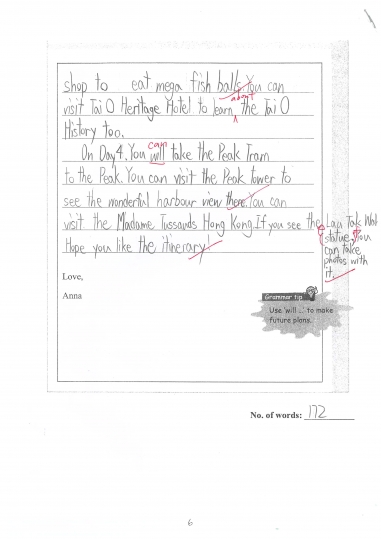 shop to eat mega fish balls. You can
about
visit Tai O Heritage Hotel to learn ^ the Tai O
History too.
can
On Day 4. You will take the Peak Tram
to the Peak. You can visit the Peak tower to
see the wonderful harbour view there. You can
visit the Madame Tussauds Hong Kong. If you see the Lau Tak Wah
statue, you
can take
photos with
it.
Hope you like the itinerary!
Love,
Anna
Grammar tip
Use 'will ...' to make
future plans.
No. of words: 172
6